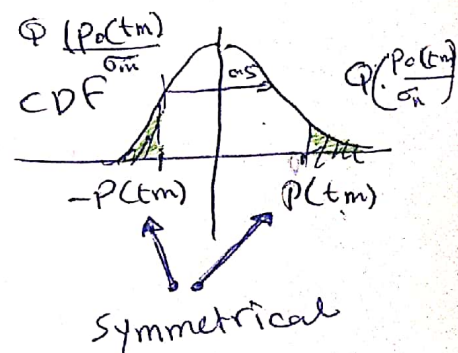 Φ (p₀(tm)/σm)
CDF
0.5
Q(p₀(tm)/σn)
-P(tm)
P(tm)
Symmetrical